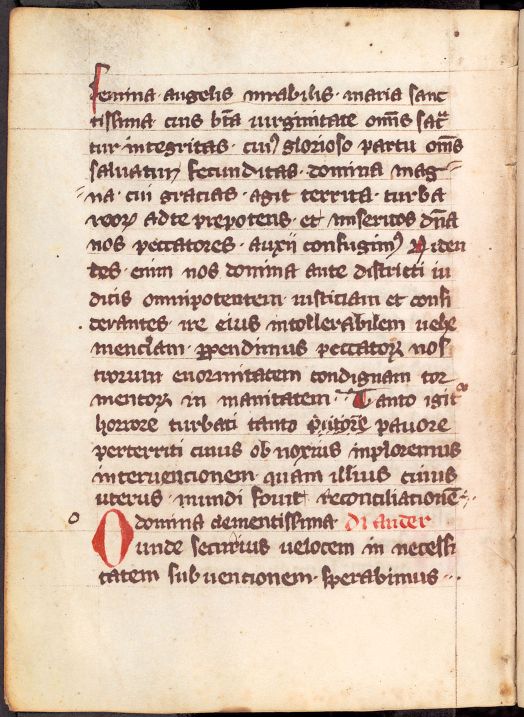 femina · angelis mirabilis · maria sanc
tissima cuius bt̄a uirginitate om̅s sac̄
tur integritas · cuiꝰ glorioso partu om̅s
saluatur fecunditas · domina mag
na · cui gracias · agit territa · turba
reoꝝ ad te prepotens · et miseritos dn̄a
nos peccatores · auxii confugimꝰ Uiden
tes · enim nos domina ante districti iu
dicis omnipotentem · iusticiam et consi
derantes · ire eius intollerabilem uehe
menciam · ꝑpendimus peccatoꝝ nos
trorum enormitatem condignam tor
mentoꝝ in manitatem · Tanto igit᷑
horrore turbati tanto pauore
perterriti cuius ob noxius inploremus
interuencionem · quam illius cuius
uterus · mundi fouit reconciliationē ·
o
O domina clementissima di auter
unde securius uelocem in necessi
tatem sub uencionem · sperabimus · ·